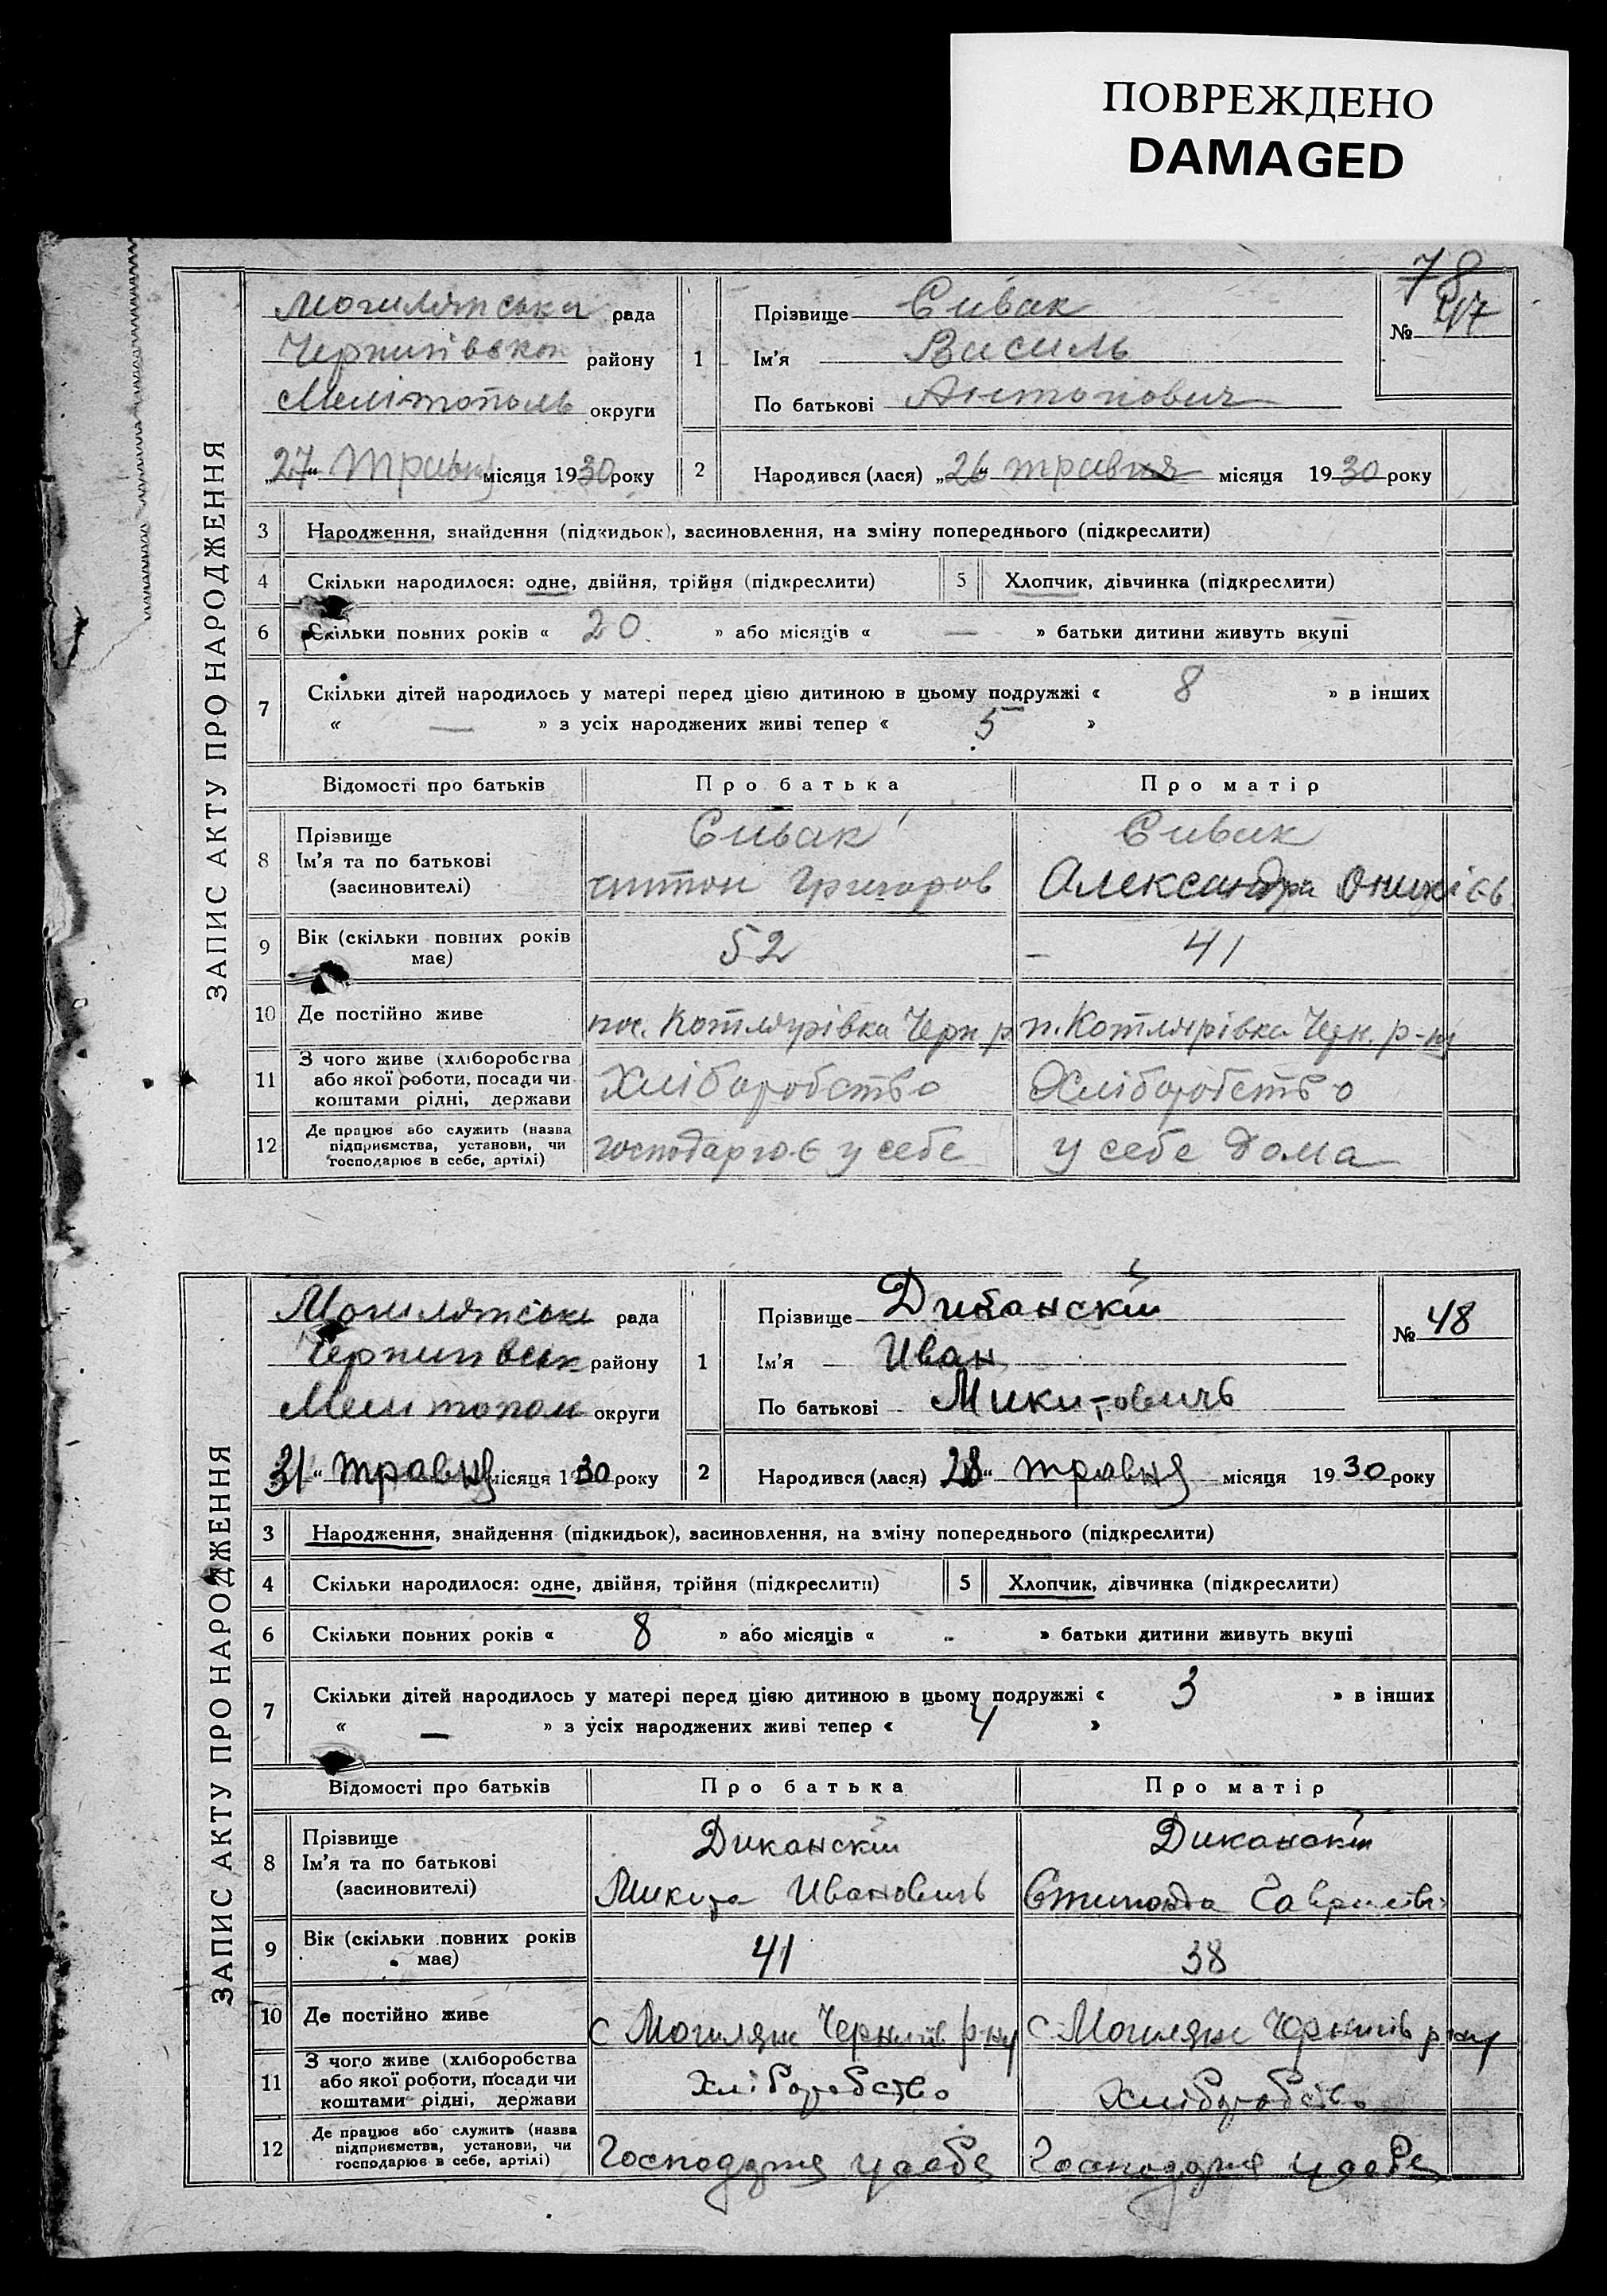 ПОВРЕЖДЕНО
DAMAGED
78
ЗАПИС АКТУ ПРО НАРОДЖЕННЯ
Могилянська рада
Чернигівског району
Мелітополь округи
„27“ травня місяця 1930 року
1
Прізвище Сивак
Ім'я Василь
По батькові Антонович
№ 47
2 Народився (лася) „26“ травня місяця 1930 року
3 Народження, знайдення (підкидьок), засиновлення, на зміну попереднього (підкреслити)
4 Скільки народилося: одне, двійня, трійня (підкреслити) 5 Хлопчик, дівчинка (підкреслити)
6 Скільки повних років « 20 » або місяців « — » батьки дитини живуть вкупі
7 Скільки дітей народилось у матері перед цією дитиною в цьому подружжі « 8 » в інших
« — » з усіх народжених живі тепер « 5 »
Відомості про батьків Про батька Про матір
8 Прізвище Ім'я та по батькові (засиновителі)
Сивак Сивак
Антон Григоров Александра
9 Вік (скільки повних років має) 52 – 41
10 Де постійно живе пос. Котлярівка Черн. р п. Котлярівка Черн. р-ну
11 З чого живе (хліборобства або якої роботи, посади чи коштами рідні, держави Хліборобство Хліборобство
12 Де працює або служить (назва підприємства, установи, чи господарює в себе, артілі) господарює у себе у себе дома
ЗАПИС АКТУ ПРО НАРОДЖЕННЯ
Могилянськ рада
Чернигівськ району
Мелитопол округи
31“ травня місяця 1930 року
1
Прізвище Диканскій
Ім'я Иван
По батькові Микитовичъ
№ 48
2 Народився (лася) 28“ травня місяця 1930 року
3 Народження, знайдення (підкидьок), засиновлення, на зміну попереднього (підкреслити)
4 Скільки народилося: одне, двійня, трійня (підкреслити) 5 Хлопчик, дівчинка (підкреслити)
6 Скільки повних років « 8 » або місяців « - » батьки дитини живуть вкупі
7 Скільки дітей народилось у матері перед цією дитиною в цьому подружжі « 3 » в інших
« — » з усіх народжених живі тепер « 4 »
Відомості про батьків Про батька Про матір
8 Прізвище Ім'я та по батькові (засиновителі)
Диканскій Диканскій
Микита Ивановичъ
9 Вік (скільки повних років має) 41 38
10 Де постійно живе с Могиляни Чернигів р-ну с Могиляни Чернигів р-ну
11 З чого живе (хліборобства або якої роботи, посади чи коштами рідні, держави Хліборобство Хліборобство
12 Де працює або служить (назва підприємства, установи, чи господарює в себе, артілі) Господдря у себе Господдря у себе